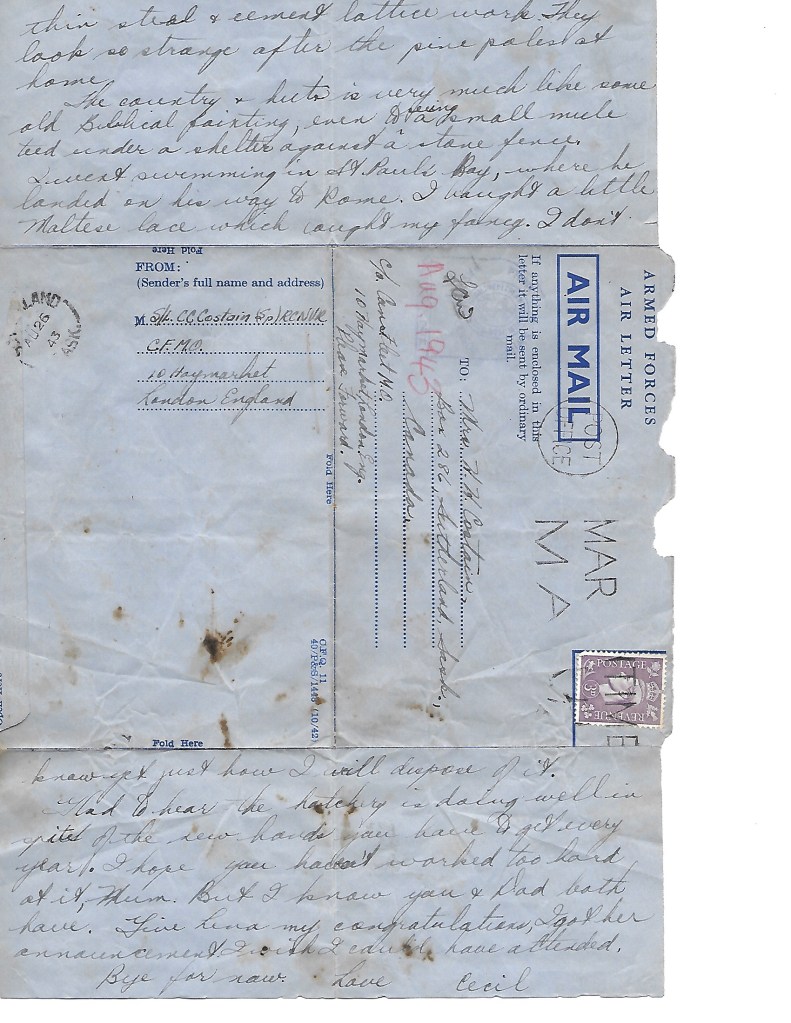 thin steal & cement lattice work. They
look so strange after the pine poles at
home.
The country & huts is very much like some
old Biblical painting, even to seeing a small mule
teed under a shelter against a stone fence.
I went swimming in St. Pauls Bay, where he
landed on his way to Rome. I baught a little
Maltese lace which caught my fancy. I don't
Fold Here
FROM:
(Sender's full name and address)
M S/Lt. CC Costain (Sp) RCNVR
C.F.M.O.
10 Haymarket
London England
LAND
AU 26
43
SASK
Fold Here
C.F.Q. 11
40/P&S/1446 (10/42)
Fold Here
ARMED FORCES
AIR LETTER
AIR MAIL
If anything is enclosed in this
letter it will be sent by ordinary
mail.
POST
OFFICE
MAR
MA
TIME
POSTAGE
3D
REVENUE
Aug. 1943
TO: Mrs. H H Costain
Box 286, Sutherland, Sask.,
Canada.
10 Haymarket London, Eng.
Please Forward.
know yet just how I will dispose of it.
Glad to hear the hatchery is doing well in
spite of the new hands you have to get every
year. I hope you haven't worked too hard
at it, Mum. But I know you & Dad both
have. Give Lena my congratulations, I got her
announcement. I wish I could have attended.
Bye for now. Love Cecil